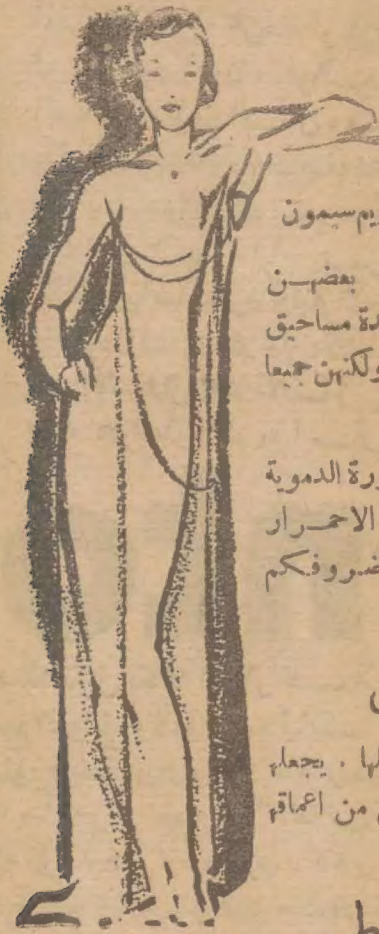 يم سيمون
بعضهن
دة مساحيق
ولكنهن جميعا
ورة الدموية
الاحمرار
ضروفكم
ها . يجعلها
من اعماقها
ط